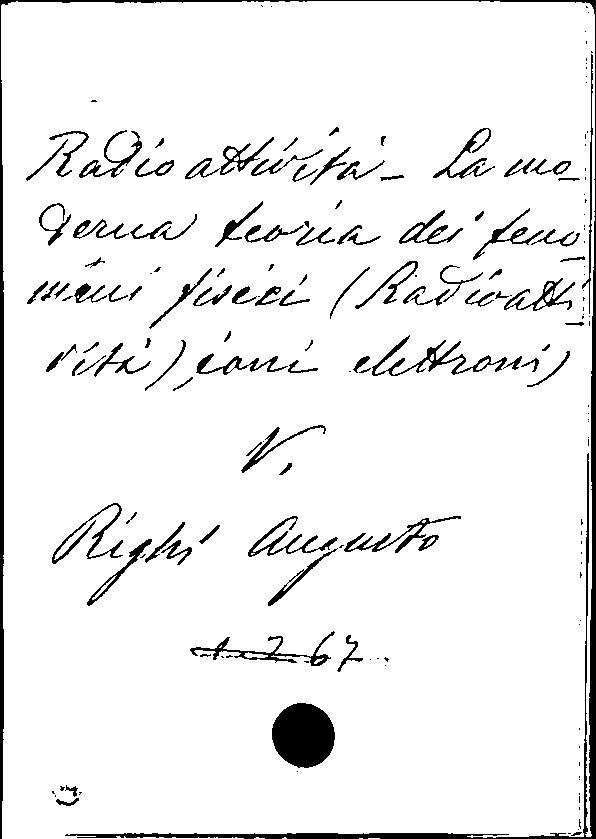 Radioattività - La mo-
derna teoria dei feno-
meni fisici (Radioatti-
vità), ioni elettroni)
V.
Righi Augusto